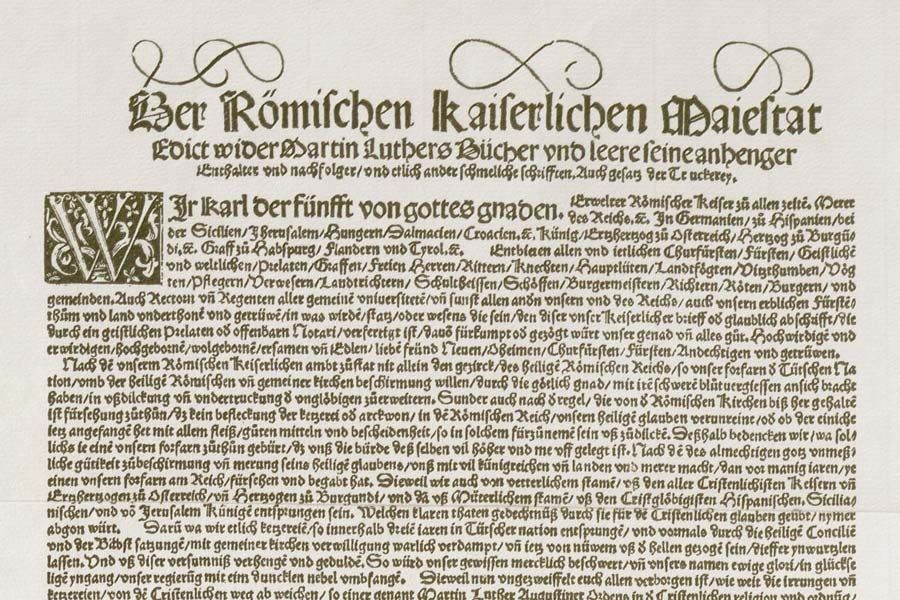 Der Römischen Kaiserlichen Maiestat
Edict wider Martin Luthers Bücher vnd leere seine anhenger
Enthalter vnd nachfolger/vnd etlich ander schmeliche schrifften. Auch gesatz der Truckerey.
WIr Karl der fünfft von gottes gnaden. Erwelter Römischer Keiser zů allen zeitē. Merer
des Reichs.ꝛc. In Germanien/zů Hispanien/bei
der Sicilien/Jherusalem/Hungern/Dalmacien/Croacien.ꝛc. Künig/Ertzhertzog zů Osterreich/Hertzog zů Burgū
di.ꝛc. Graff zů Habspurg/Flandern vnd Tyrol.ꝛc. Entbieten allen vnd ietlichen Churfürsten/Fürsten/Geistlichē
vnd weltlichen/Prelaten/Graffen/Freien Herren/Rittern/Knechten/Hauptlüten/Landtfögten/Vitzthumben/Vög
ten/Pflegern/Verwesern/Landtrichtern/Schultheissen/Schöffen/Burgermeistern/Richtern/Röten/Burgern/vnd
gemeinden. Auch Rectorn vn̄ Regenten aller gemeinē vniuersitetē/vn̄ sunst allen andn vnsern vnd des Reichs/auch vnsern erblichen Fürstē
thům vnd land vnderthonē vnd getrüwē/in was wirdē/statz/oder wesens die sein/den diser vnser Keiserlicher brieff od glaublich abschrifft/die
durch ein geistlichen Prelaten od offenbarn Notari/verfertigt ist/
er wirdigen/hochgebornē/wolgebornē/ersamen vn̄ Edlen/liebē fründ Neuen/Oheimen/Churfürsten/Fürsten/Andechtigen vnd getrüwen.
Nach dē vnserm Römischen Keiserlichen ambt zůstat nit allein den gezirck/des heiligē Römischen Reichs/so vnser forfarn d Tütschen Na
tion/vmb der heiligē Römischen vn̄ gemeiner kirchen beschirmung willen/durch die götlich gnad/mit irē schwerē blůtuergiessen an sich bracht
haben/in vßbildung vn̄ vndertruckung d vnglöbigen zů erweitern. Sunder auch nach d regel/die von d Römischen Kirchen biß her gehaltē
ist fürsehung zůthůn/dz kein befleckung der ketzerei od arckwon/in dē Römischen Reich/vnsern heiligē glauben verunreine/od ob der einiche
ietz angefangē het mit allem fleiß/gůten mitteln vnd bescheidenheit/so in solchem fürzůnemē sein vß zůdilckē. Deßhalb bedencken wir/wa sol
lichs ie einē vnsern forfarn zůthůn gebürt/dz vnß die bürde deß selben vil höher vnd me vff gelegt ist. Nach dē des almechtigen gotz vnmeß
liche gütikeit zů beschirmung vn̄ merung seins heiligē glaubens/vnß mit vil künigreichen vn̄ landen vnd merer macht/dan vor manig iaren/ye
einen vnsern forfarn am Reich/fürsehen vnd begabt hat. Dieweil wir auch von vetterlichem stamē/vß den aller Cristenlichisten Keisern vn̄
Ertzhertzogen zů Osterreich/vn̄ Hertzogen zů Burgundi/vnd dā vß Můterlichem stamē/vß den Cristglöbigisten Hispanischen. Sicilia
nischen/vnd vō Jerusalem Künigē entsprungen sein. Welchen klaren thaten gedechtnüß durch sie für dē Cristenlichen glauben geübt/nymer
abgon würt. Darū wa wir etlich ketzereiē/so innerhalb dreiē iaren in Tütscher nation entsprungē/vnd vormals durch die heiligē Concilie
vnd der Bäbst satzungē/mit gemeiner kirchen verwilligung warlich verdampt/vn̄ ietz von nüwem vß d hellen gezogē sein/dieffer ynwurtzlen
lassen. Vnd vß diser versumniß verhengē vnd geduldē. So würd vnser gewissen mercklich beschwert/vn̄ vnsers namen ewige glori/in glücksē
ligē yngang/vnser regierūg mit eim duncklen nebel vmbfangē. Dieweil nun vngezweiffelt euch allen verborgen ist/wie weit die irrungen vn̄
ketzereien/von dē Cristenlichen weg ab weichen/so einer genant Martin Luther Augustiner Ordens in d Cristenlichen religion vnd ordnūg/